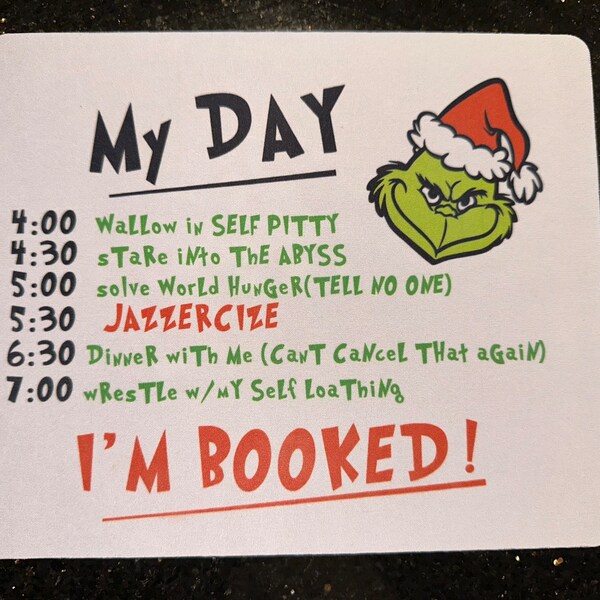 My DAY
4:00 WaLLow iN SELF PITTY
4:30 sTaRe iNto ThE ABYSS
5:00 solve WorLd HuNGeR(TELL NO ONE)
5:30 JAZZERCIZE
6:30 DiNNeR wiTh Me (CaNT CaNCeL THaT aGaiN)
7:00 wResTLe w/MY SeLf LoaThiNg
I'M BOOKED!